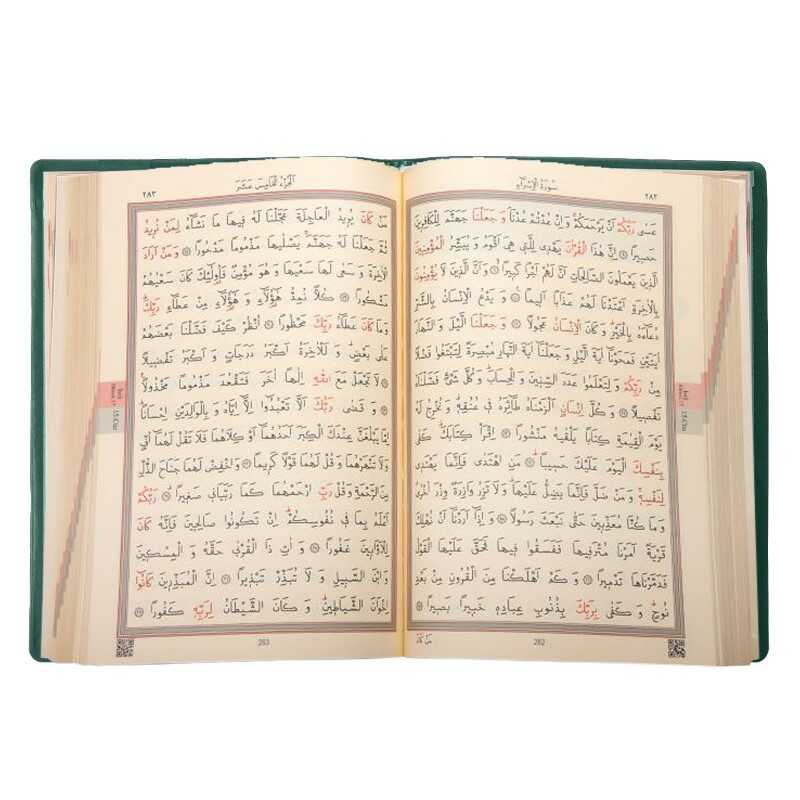 سُورَةُ الْإِسْرَاءِ
٢٨٢
عَسٰى رَبُّكُمْ اَنْ يَرْحَمَكُمْ وَاِنْ عُدْتُمْ عُدْنَا وَ جَعَلْنَا جَهَنَّمَ لِلْكَافِرِينَ
حَصِيرًا ۝ اِنَّ هٰذَا الْقُرْاٰنَ يَهْدِي لِلَّتِي هِيَ اَقْوَمُ وَ يُبَشِّرُ الْمُؤْمِنِينَ
الَّذِينَ يَعْمَلُونَ الصَّالِحَاتِ اَنَّ لَهُمْ اَجْرًا كَبِيرًا ۝ وَ اَنَّ الَّذِينَ لَا يُؤْمِنُونَ
بِالْاٰخِرَةِ اَعْتَدْنَا لَهُمْ عَذَابًا اَلِيمًا ۝ وَ يَدْعُ الْاِنْسَانُ بِالشَّرِّ
دُعَاءَهُ بِالْخَيْرِ وَ كَانَ الْاِنْسَانُ عَجُولًا ۝ وَ جَعَلْنَا الَّيْلَ وَ النَّهَارَ
اٰيَتَيْنِ فَمَحَوْنَا اٰيَةَ الَّيْلِ وَ جَعَلْنَا اٰيَةَ النَّهَارِ مُبْصِرَةً لِتَبْتَغُوا فَضْلًا
مِنْ رَبِّكُمْ وَ لِتَعْلَمُوا عَدَدَ السِّنِينَ وَ الْحِسَابَ وَ كُلَّ شَيْءٍ فَصَّلْنَاهُ
تَفْصِيلًا ۝ وَ كُلَّ اِنْسَانٍ اَلْزَمْنَاهُ طَائِرَهُ فِي عُنُقِهِ وَ نُخْرِجُ لَهُ
يَوْمَ الْقِيٰمَةِ كِتَابًا يَلْقٰيهُ مَنْشُورًا ۝ اِقْرَأْ كِتَابَكَ كَفٰى
بِنَفْسِكَ الْيَوْمَ عَلَيْكَ حَسِيبًا ۝ مَنِ اهْتَدٰى فَاِنَّمَا يَهْتَدِي
لِنَفْسِهِ وَ مَنْ ضَلَّ فَاِنَّمَا يَضِلُّ عَلَيْهَا وَ لَا تَزِرُ وَازِرَةٌ وِزْرَ اُخْرٰى
وَ مَا كُنَّا مُعَذِّبِينَ حَتّٰى نَبْعَثَ رَسُولًا ۝ وَ اِذَا اَرَدْنَا اَنْ نُهْلِكَ
قَرْيَةً اَمَرْنَا مُتْرَفِيهَا فَفَسَقُوا فِيهَا فَحَقَّ عَلَيْهَا الْقَوْلُ
فَدَمَّرْنَاهَا تَدْمِيرًا ۝ وَ كَمْ اَهْلَكْنَا مِنَ الْقُرُونِ مِنْ بَعْدِ
نُوحٍ وَ كَفٰى بِرَبِّكَ بِذُنُوبِ عِبَادِهِ خَبِيرًا بَصِيرًا ۝
مَنْ كَانَ
282
15.Cüz
اَلْجُزْءُ الْخَامِسَ عَشَرَ
٢٨٣
مَنْ كَانَ يُرِيدُ الْعَاجِلَةَ عَجَّلْنَا لَهُ فِيهَا مَا نَشَاءُ لِمَنْ نُرِيدُ
ثُمَّ جَعَلْنَا لَهُ جَهَنَّمَ يَصْلٰيهَا مَذْمُومًا مَدْحُورًا ۝ وَ مَنْ اَرَادَ
الْاٰخِرَةَ وَ سَعٰى لَهَا سَعْيَهَا وَ هُوَ مُؤْمِنٌ فَاُولٰئِكَ كَانَ سَعْيُهُمْ
مَشْكُورًا ۝ كُلًّا نُمِدُّ هٰؤُلَاءِ وَ هٰؤُلَاءِ مِنْ عَطَاءِ رَبِّكَ
وَ مَا كَانَ عَطَاءُ رَبِّكَ مَحْظُورًا ۝ اُنْظُرْ كَيْفَ فَضَّلْنَا بَعْضَهُمْ
عَلٰى بَعْضٍ وَ لَلْاٰخِرَةُ اَكْبَرُ دَرَجَاتٍ وَ اَكْبَرُ تَفْضِيلًا
۝ لَا تَجْعَلْ مَعَ اللّٰهِ اِلٰهًا اٰخَرَ فَتَقْعُدَ مَذْمُومًا مَخْذُولًا
۝ وَ قَضٰى رَبُّكَ اَلَّا تَعْبُدُوا اِلَّا اِيَّاهُ وَ بِالْوَالِدَيْنِ اِحْسَانًا
اِمَّا يَبْلُغَنَّ عِنْدَكَ الْكِبَرَ اَحَدُهُمَا اَوْ كِلَاهُمَا فَلَا تَقُلْ لَهُمَا اُفٍّ
وَلَا تَنْهَرْهُمَا وَ قُلْ لَهُمَا قَوْلًا كَرِيمًا ۝ وَاخْفِضْ لَهُمَا جَنَاحَ الذُّلِّ
مِنَ الرَّحْمَةِ وَ قُلْ رَبِّ ارْحَمْهُمَا كَمَا رَبَّيَانِي صَغِيرًا ۝ رَبُّكُمْ
اَعْلَمُ بِمَا فِي نُفُوسِكُمْ اِنْ تَكُونُوا صَالِحِينَ فَاِنَّهُ كَانَ
لِلْاَوَّابِينَ غَفُورًا ۝ وَ اٰتِ ذَا الْقُرْبٰى حَقَّهُ وَ الْمِسْكِينَ
وَابْنَ السَّبِيلِ وَ لَا تُبَذِّرْ تَبْذِيرًا ۝ اِنَّ الْمُبَذِّرِينَ كَانُوا
اِخْوَانَ الشَّيَاطِينِ وَ كَانَ الشَّيْطَانُ لِرَبِّهِ كَفُورًا ۝
283
15.Cüz